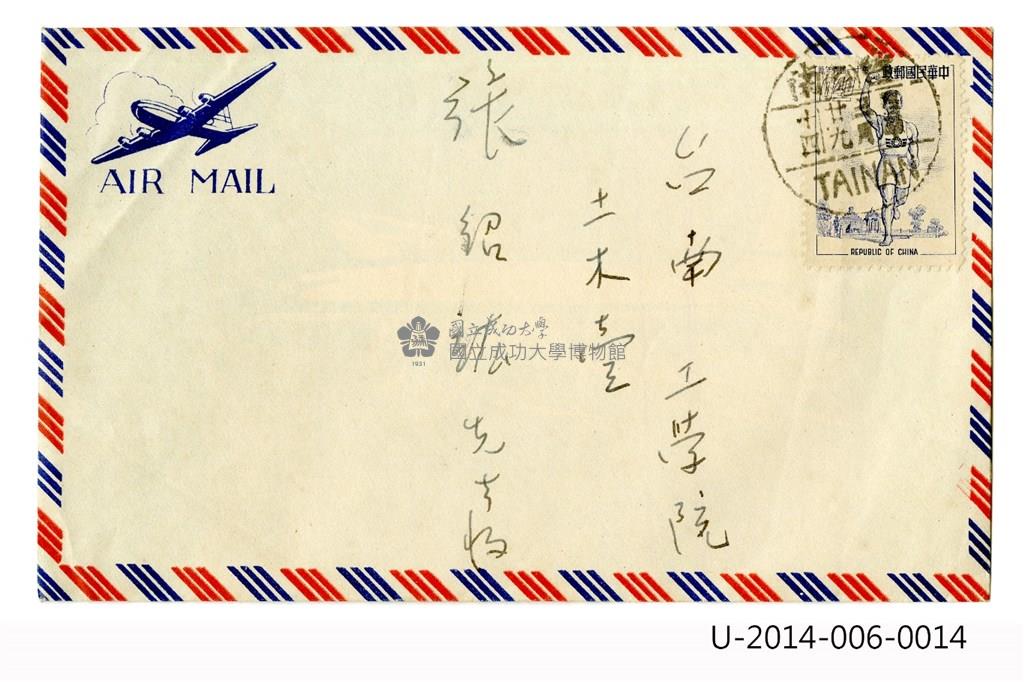 AIR MAIL
中華民國郵政
台南
TAINAN
REPUBLIC OF CHINA
台南 工學院
土木
張紹
先生收
國立成功大學
國立成功大學博物館
1931
U-2014-006-0014